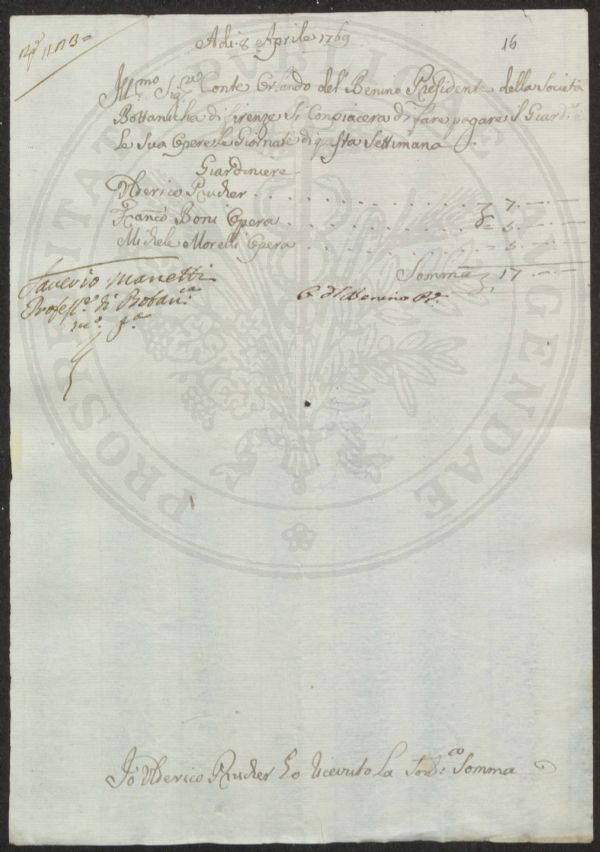 16
Adi 8 Aprile 1769
Ill.mo Sig.re Conte Orlando del Benino Presidente della Società
Bottanicha di firenze Si Conpiacera di fare pagare il Giard.re e
le Sua Opere le Giornate di questa Settimana
Giardiniere
Ulderico Rucher . . . . . . . . . 7 . — —
Franco Boni Opera . . . . . . . . 5 . — —
Michele Morelli Opera . . . . . . . . 5 . — —
Somma 17 — —
Saverio Manetti
Profess.e di Botan.ca
O del Benino Pr.
Io Ulderico Rucher Ho ricevuto La Sod.a Somma
PROSPERITATI PUBLICAE AUGENDAE